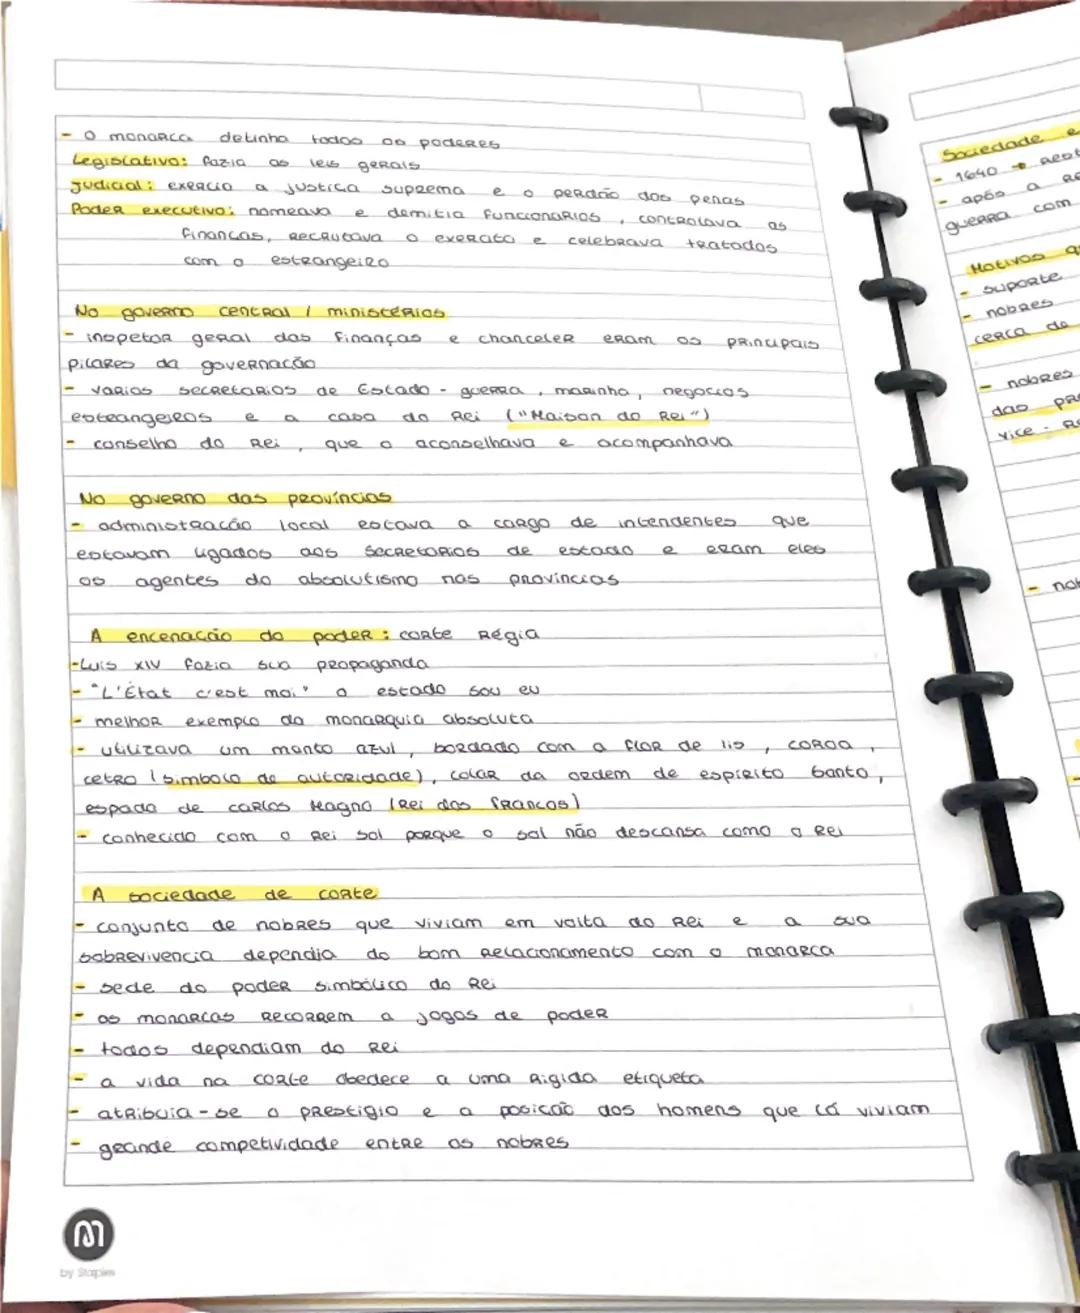 - O monarca detinha todos os poderes
Legislativo: fazia as leis gerais
Judicial: exercia a justiça suprema e o perdão das penas
Poder executivo: nomeava e demitia funcionários, controlava as
finanças, recrutava o exército e celebrava tratados
com o estrangeiro
No governo central / ministérios
- inspetor geral das finanças e chanceler eram os principais
pilares da governação
- varios secretarios de Estado - guerra, marinha, negocios
estrangeiros e a casa do Rei ("Maison do Rei")
- conselho do Rei, que o aconselhava e acompanhava
No governo das províncias
- administração local estava a cargo de intendentes que
estavam ligados aos secretários de estado e eram eles
os agentes do absolutismo nas provincias
A encenação do poder: corte Régia
- Luis XIV fazia sua propaganda
- "L'État c'est moi" o estado sou eu
- melhor exemplo da monarquia absoluta
- utilizava um manto azul, bordado com a flor de lis, coroa,
cetro (simbolo de autoridade), colar da ordem de espirito santo,
espada de carlos Magno (Rei dos francos)
- conhecido com o Rei Sol porque o sol não descansa como o Rei
A sociedade de corte
- conjunto de nobres que viviam em volta do Rei e a sua
sobrevivencia dependia do bom relacionamento com o monarca
- sede do poder simbólico do Rei
- os monarcas recorrem a jogos de poder
- todos dependiam do Rei
- a vida na corte obedece a uma rigida etiqueta
- atribuia-se o prestigio e a posição dos homens que lá viviam
- grande competividade entre os nobres
by Staples
Sociedade e
- 1640 →
- após a
guerra com
Motivos
- suporte
- nobres
cerca de
- nobres
dao
vice -